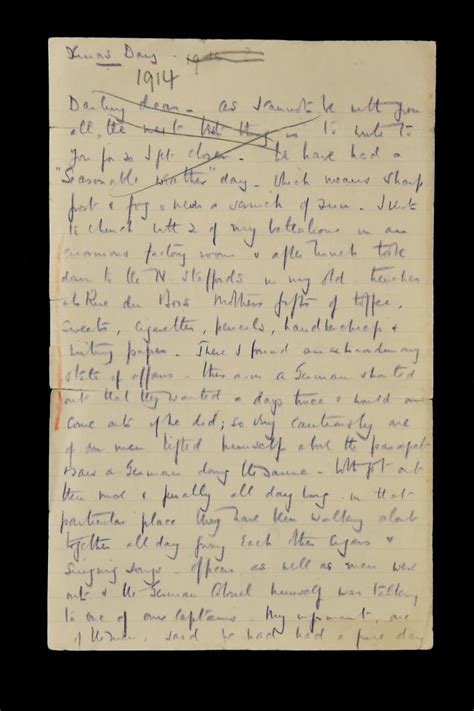 Xmas Day
1914
Darling dear - as I cannot be with you
all, the next best thing is to write to
you for so I get closer. We have had a
"Seasonable weather" day - which means sharp
frost & fog & never a scrinch of sun. I went
to church with 2 of my battalions in an
enormous factory room & after lunch took
down to the N Staffords in my old trenches
at Rue du Bois Mothers gifts of toffee,
sweets, cigarettes, pencils, handkerchiefs &
writing paper. There I found an extraordinary
state of affairs - this a.m. a German shouted
out that they wanted a days truce & would one
come out if he did; so very cautiously one
of our men lifted himself above the parapet
& saw a German doing the same. Both got out
then more & finally all day long in that
particular place they have been walking about
together all day giving each other cigars &
singing songs. Officers as well as men were
out & the German Colonel himself was talking
to one of our captains. My informant, one
of the men, said he had had a fine day